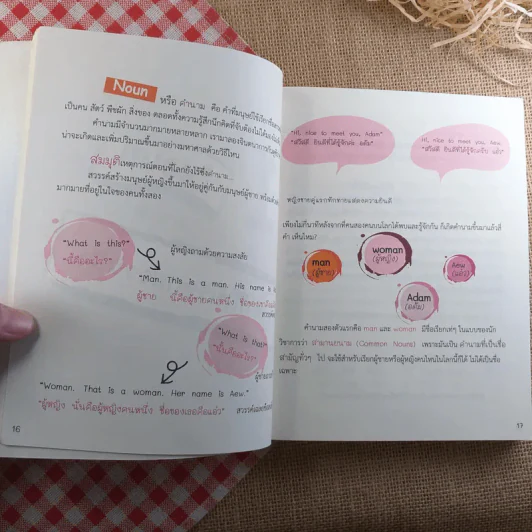 Noun หรือ คำนาม คือ คำที่มนุษย์ใช้เรียกชื่อ
เป็นคน สัตว์ พืชผัก สิ่งของ ตลอดทั้งความรู้สึกนึกคิดที่จับต้องไม่ได้
คำนามมีจำนวนมากมายหลายหลาก เรามาลอง
น่าจะเกิดและเพิ่มปริมาณขึ้นมาอย่างมหาศาลด้วยวิธีไหน
สมมุติเหตุการณ์ตอนที่โลกยังไร้ซึ่งคำนาม...
สวรรค์สร้างมนุษย์ผู้หญิงขึ้นมาให้อยู่คู่กับมนุษย์ผู้ชาย
มากมายที่อยู่ในใจของคนทั้งสอง
"What is this?"
"นี่คืออะไร?"
ผู้หญิงถามด้วยความสงสัย
"Man. This is a man. His name is
ผู้ชาย นี่คือผู้ชายคนหนึ่ง ชื่อของเขาคือ
"What is that?"
"นั่นคืออะไร"
"Woman. That is a woman. Her name is Aew."
"ผู้หญิง นั่นคือผู้หญิงคนหนึ่ง ชื่อของเธอคือแอ๋ว"
16
"Hi, nice to meet you, Adam"
"สวัสดี ยินดีที่ได้รู้จักค่ะ อดัม"
Hi, nice to meet you, Aew.
"สวัสดี ยินดีที่ได้รู้จักครับ แอ๋ว"
หญิงชายคู่แรกทักทายแสดงความยินดี
เพียงไม่กี่นาทีหลังจากที่คนสองคนบนโลกได้พบและรู้จักกัน ก็เกิดคำนามขึ้นมาแล้วสี่
คำ เห็นไหม?
man
(ผู้ชาย)
woman
(ผู้หญิง)
Aew
(แอ๋ว)
Adam
(อดัม)
คำนามสองตัวแรกคือ man และ woman มีชื่อเรียกเท่ๆ ในแบบของนัก
วิชาการว่า สามานยนาม (Common Nouns) เพราะมันเป็น คำนามที่เป็นชื่อ
สามัญทั่วๆ ไป จะใช้สำหรับเรียกผู้ชายหรือผู้หญิงคนไหนในโลกนี้ก็ได้ ไม่ได้เป็นชื่อ
เฉพาะ
17